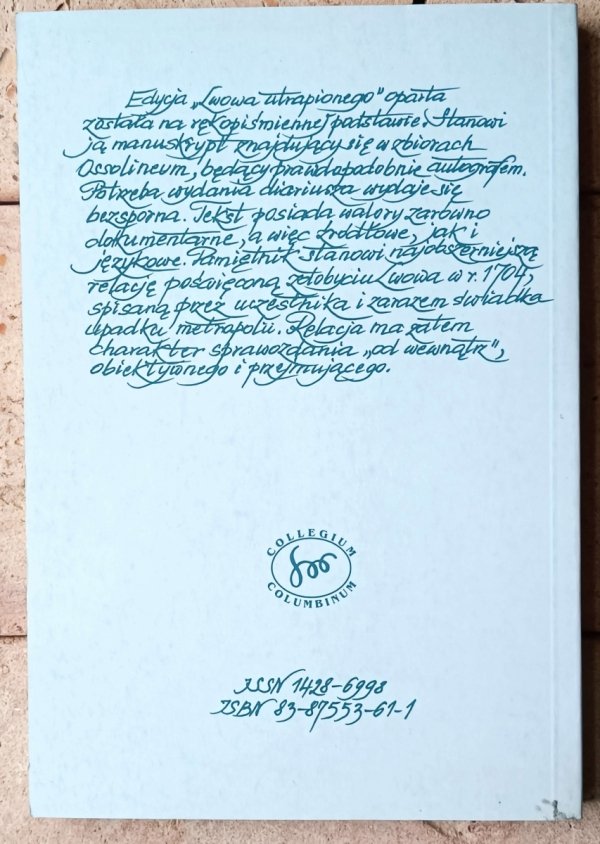 Edycja „Lwowa utrapionego" oparta
została na rękopiśmiennej podstawie. Stanowi
ją manuskrypt znajdujący się w zbiorach
Ossolineum, będący prawdopodobnie autografem.
Potrzeba wydania diariusza wydaje się
bezsporna. Tekst posiada walory zarówno
dokumentarne, a więc źródłowe, jak i
językowe. Pamiętnik stanowi najobszerniejszą
relację poświęconą zdobyciu Lwowa w r. 1704,
spisaną przez uczestnika i zarazem świadka
upadku metropolii. Relacja ma zatem
charakter sprawozdania „od wewnątrz",
obiektywnego i przejmującego.
COLLEGIUM
COLUMBINUM
ISSN 1428-6998
ISBN 83-87553-61-1